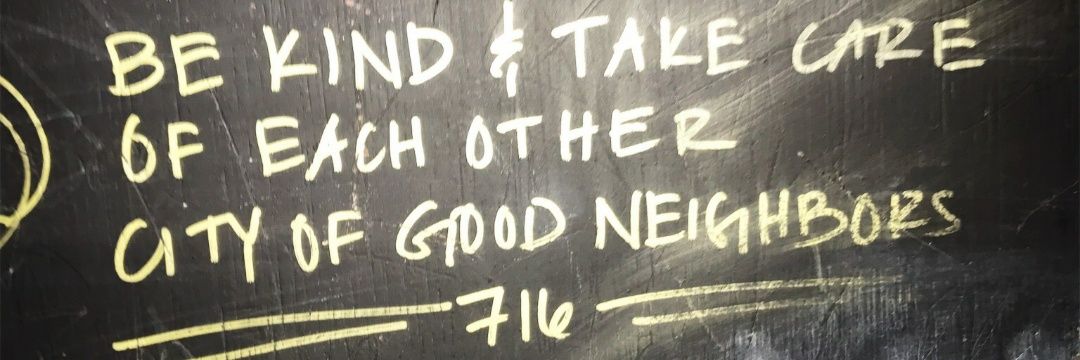 BE KIND & TAKE CARE
OF EACH OTHER
CITY OF GOOD NEIGHBORS
716